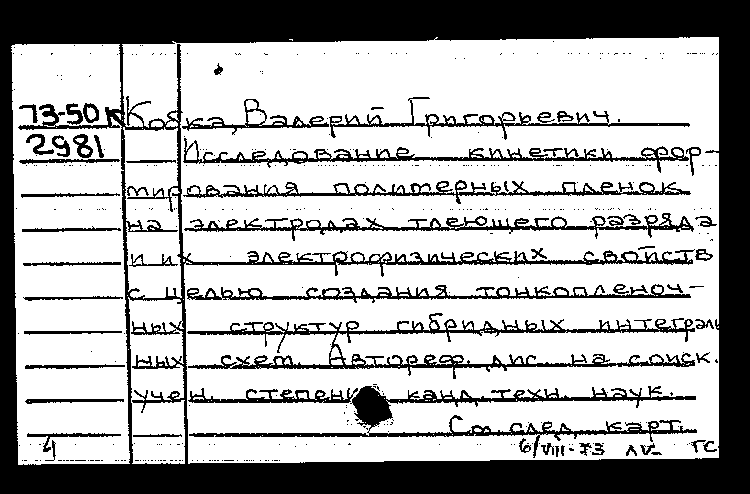 73-50к Кобка, Валерий Григорьевич.
2981 Исследование кинетики фор-
мирования полимерных пленок
на электродах тлеющего разряда
и их электрофизических свойств
с целью создания тонкопленоч-
ных структур гибридных интеграль
ных схем. Автореф. дис. на соиск.
учен. степени канд. техн. наук.
См. след. карт.
4 6/VIII-73